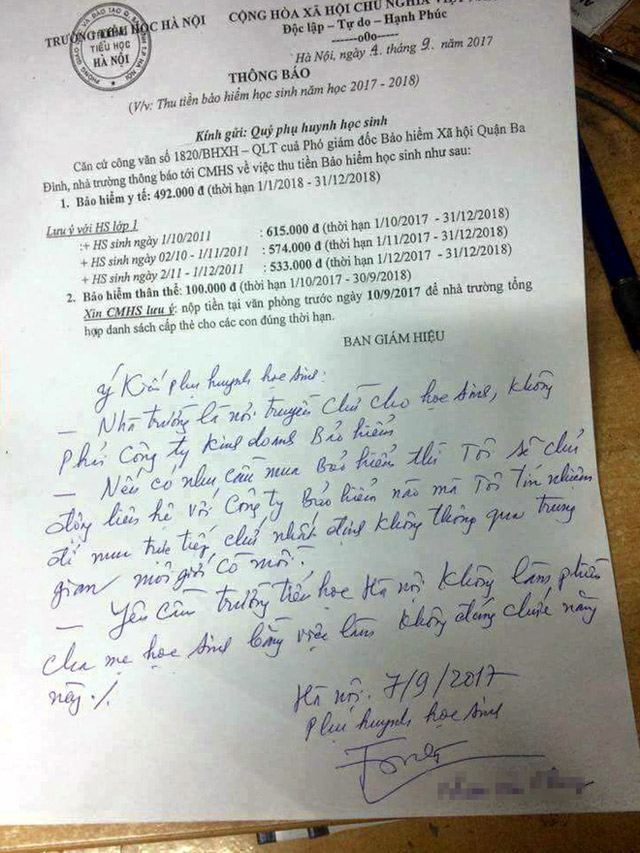 TRƯỜNG TIỂU HỌC HÀ NỘI
CỘNG HÒA XÃ HỘI CHỦ NGHĨA VIỆT
Độc lập – Tự do – Hạnh Phúc
-------o0o-------
TIỂU HỌC
HÀ NỘI
Hà Nội, ngày 4 tháng 9 năm 2017
THÔNG BÁO
(V/v: Thu tiền bảo hiểm học sinh năm học 2017 - 2018)
Kính gửi: Quý phụ huynh học sinh
Căn cứ công văn số 1820/BHXH – QLT cuả Phó giám đốc Bảo hiểm Xã hội Quận Ba
Đình, nhà trường thông báo tới CMHS về việc thu tiền Bảo hiểm học sinh như sau:
1. Bảo hiểm y tế: 492.000 đ (thời hạn 1/1/2018 - 31/12/2018)
Lưu ý với HS lớp 1
:+ HS sinh ngày 1/10/2011 : 615.000 đ (thời hạn 1/10/2017 - 31/12/2018)
+ HS sinh ngày 02/10 - 1/11/2011 : 574.000 đ (thời hạn 1/11/2017 - 31/12/2018)
+ HS sinh ngày 2/11 - 1/12/2011 : 533.000 đ (thời hạn 1/12/2017 - 31/12/2018)
2. Bảo hiểm thân thể: 100.000 đ (thời hạn 1/10/2017 - 30/9/2018)
Xin CMHS lưu ý: nộp tiền tại văn phòng trước ngày 10/9/2017 để nhà trường tổng
hợp danh sách cấp thẻ cho các con đúng thời hạn.
BAN GIÁM HIỆU
Ý Kiến phụ huynh học sinh:
– Nhà trường là nơi truyền chữ cho học sinh, không
phải Công ty Kinh doanh Bảo hiểm
– Nếu có nhu cầu mua Bảo hiểm thì Tôi sẽ chủ
động liên hệ với Công ty Bảo hiểm nào mà Tôi Tín nhiệm
để mua trực tiếp chứ nhất định không thông qua trung
gian môi giới cò mồi.
– Yêu cầu trường tiểu học Hà nội không làm phiền
cha mẹ học sinh bằng việc làm không đúng chức năng
này ./.
Hà nội. 7/9/2017
Phụ huynh học sinh